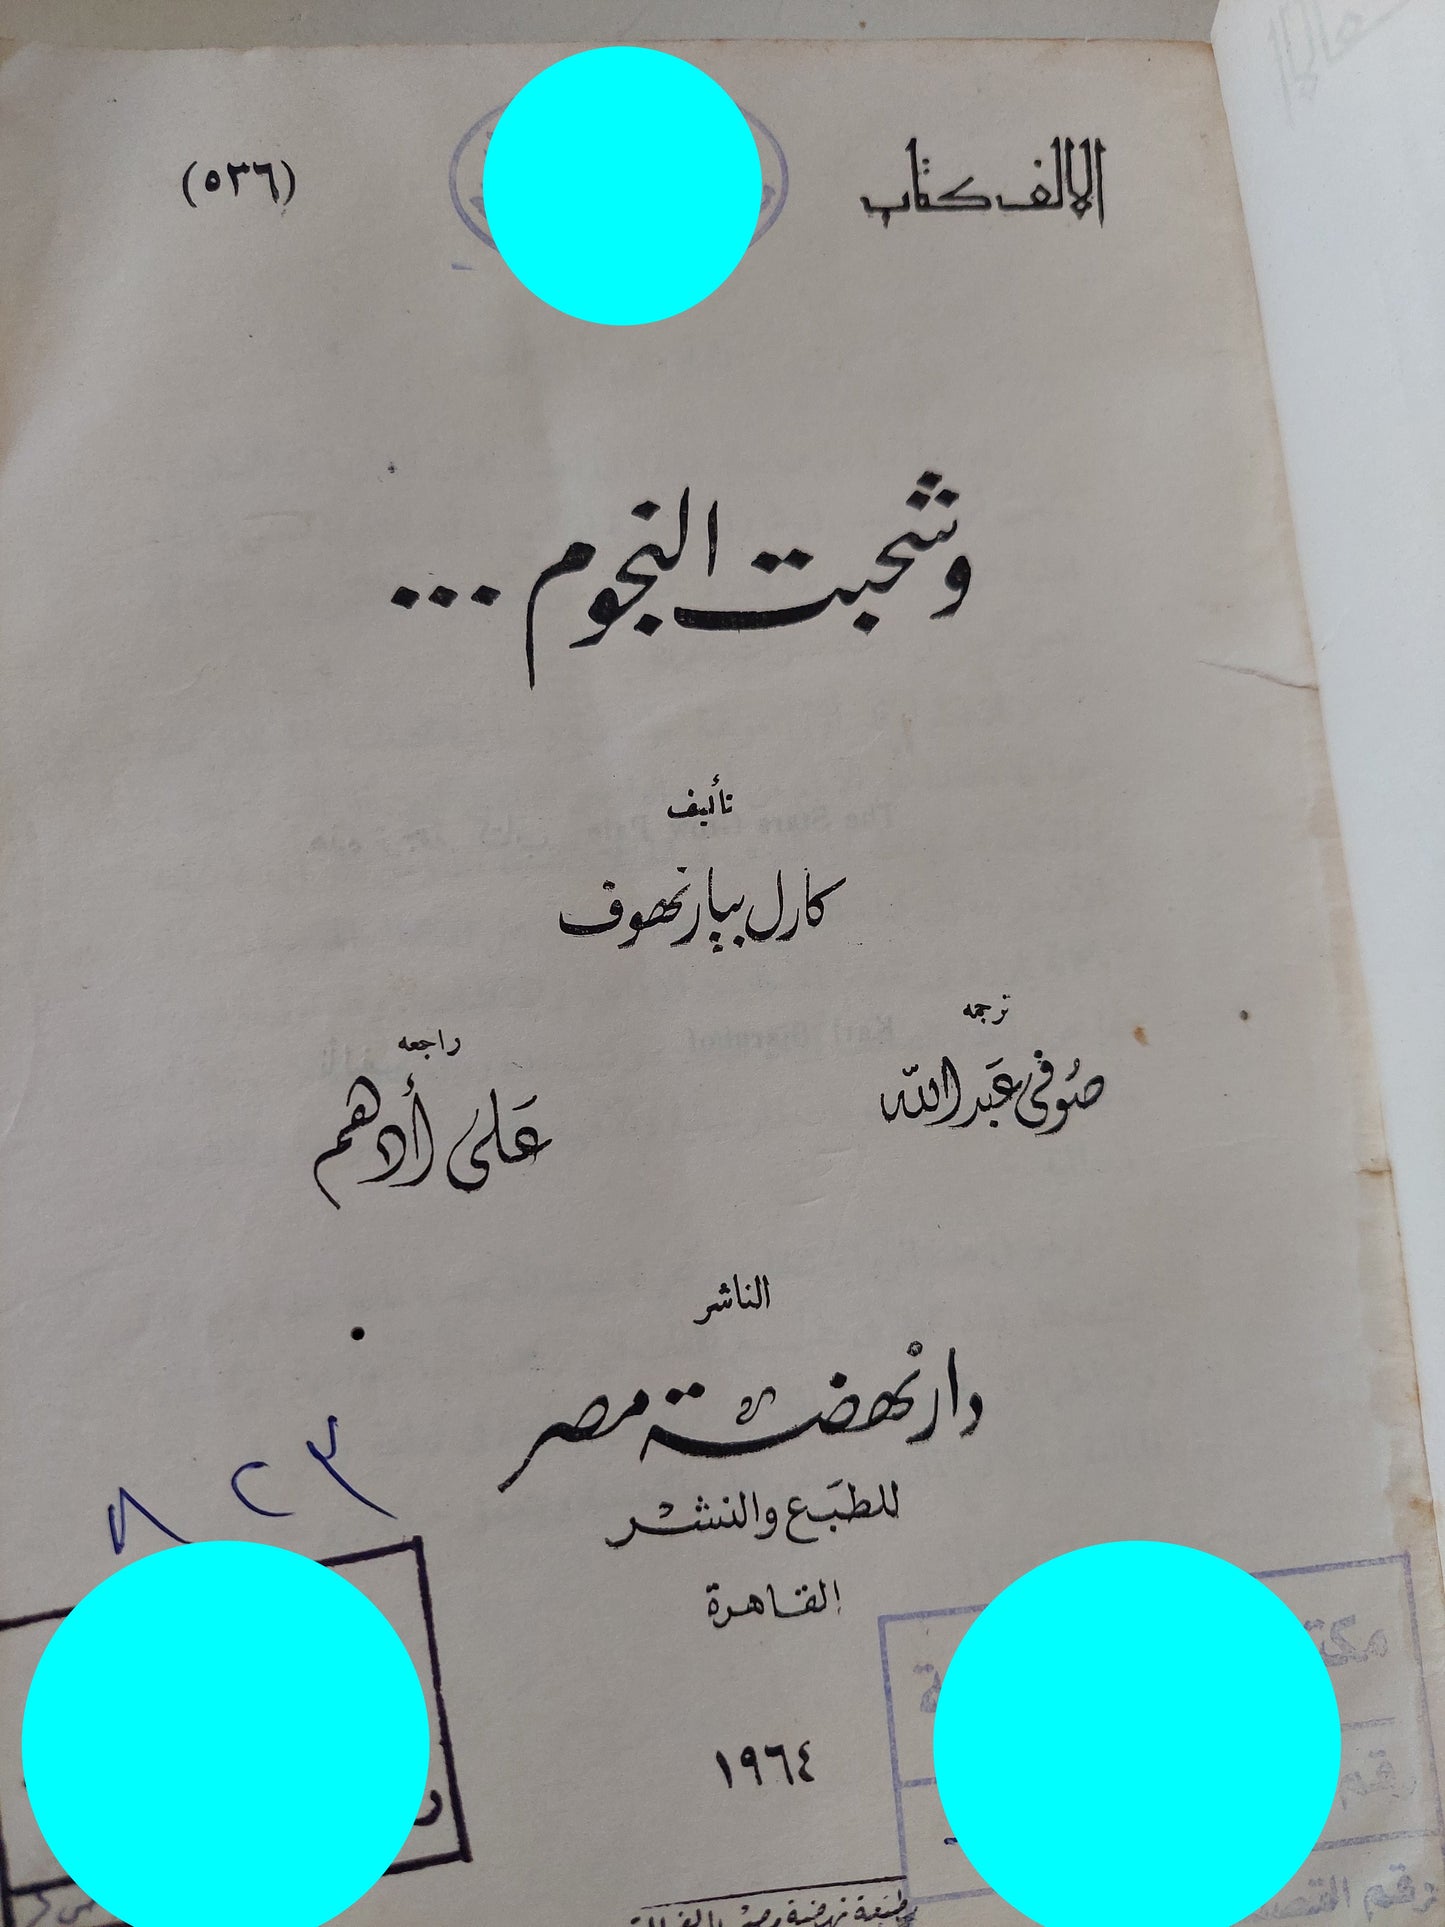 الألف كتاب
(٥٣٦)
وشحبت النجوم ...
تأليف
كارل بيارنهوف
ترجمه
صوفى عبد الله
راجعه
على أدهم
الناشر
دار نهضة مصر
للطبع والنشر
القاهرة
٨٢٣
١٩٦٤
رقم